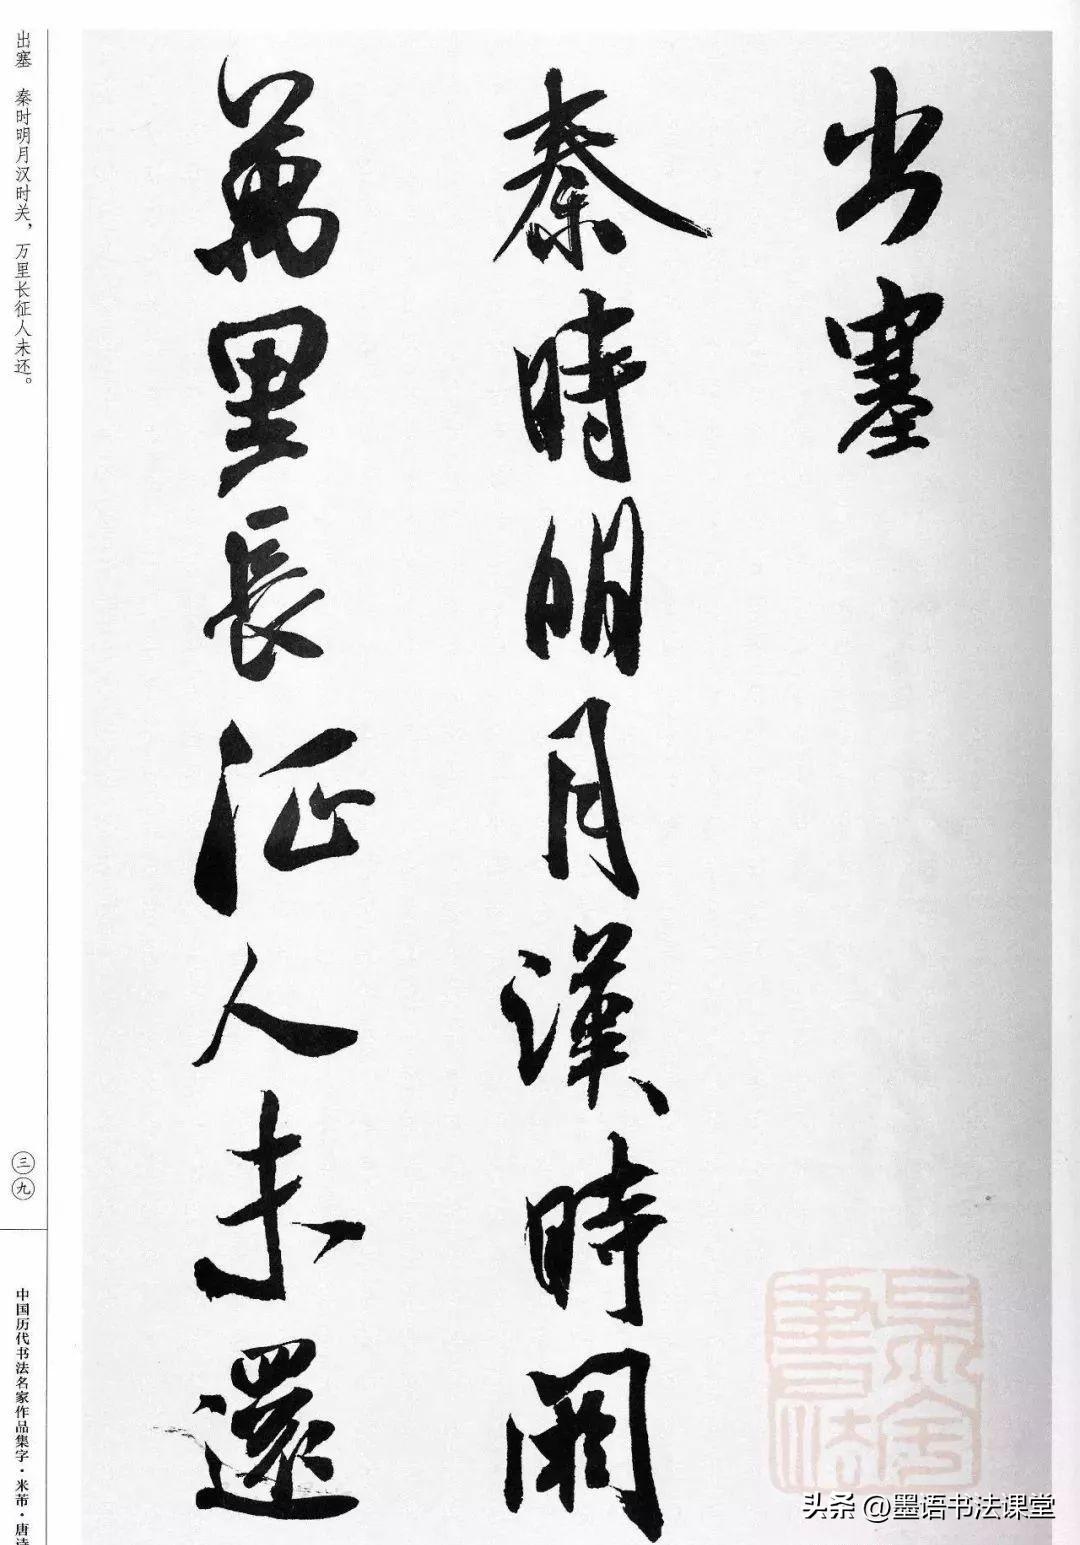 出塞
秦時明月漢時関
萬里長征人未還
出塞 秦时明月汉时关，万里长征人未还。
三九
中国历代书法名家作品集字·米芾·唐诗
头条 @墨语书法课堂